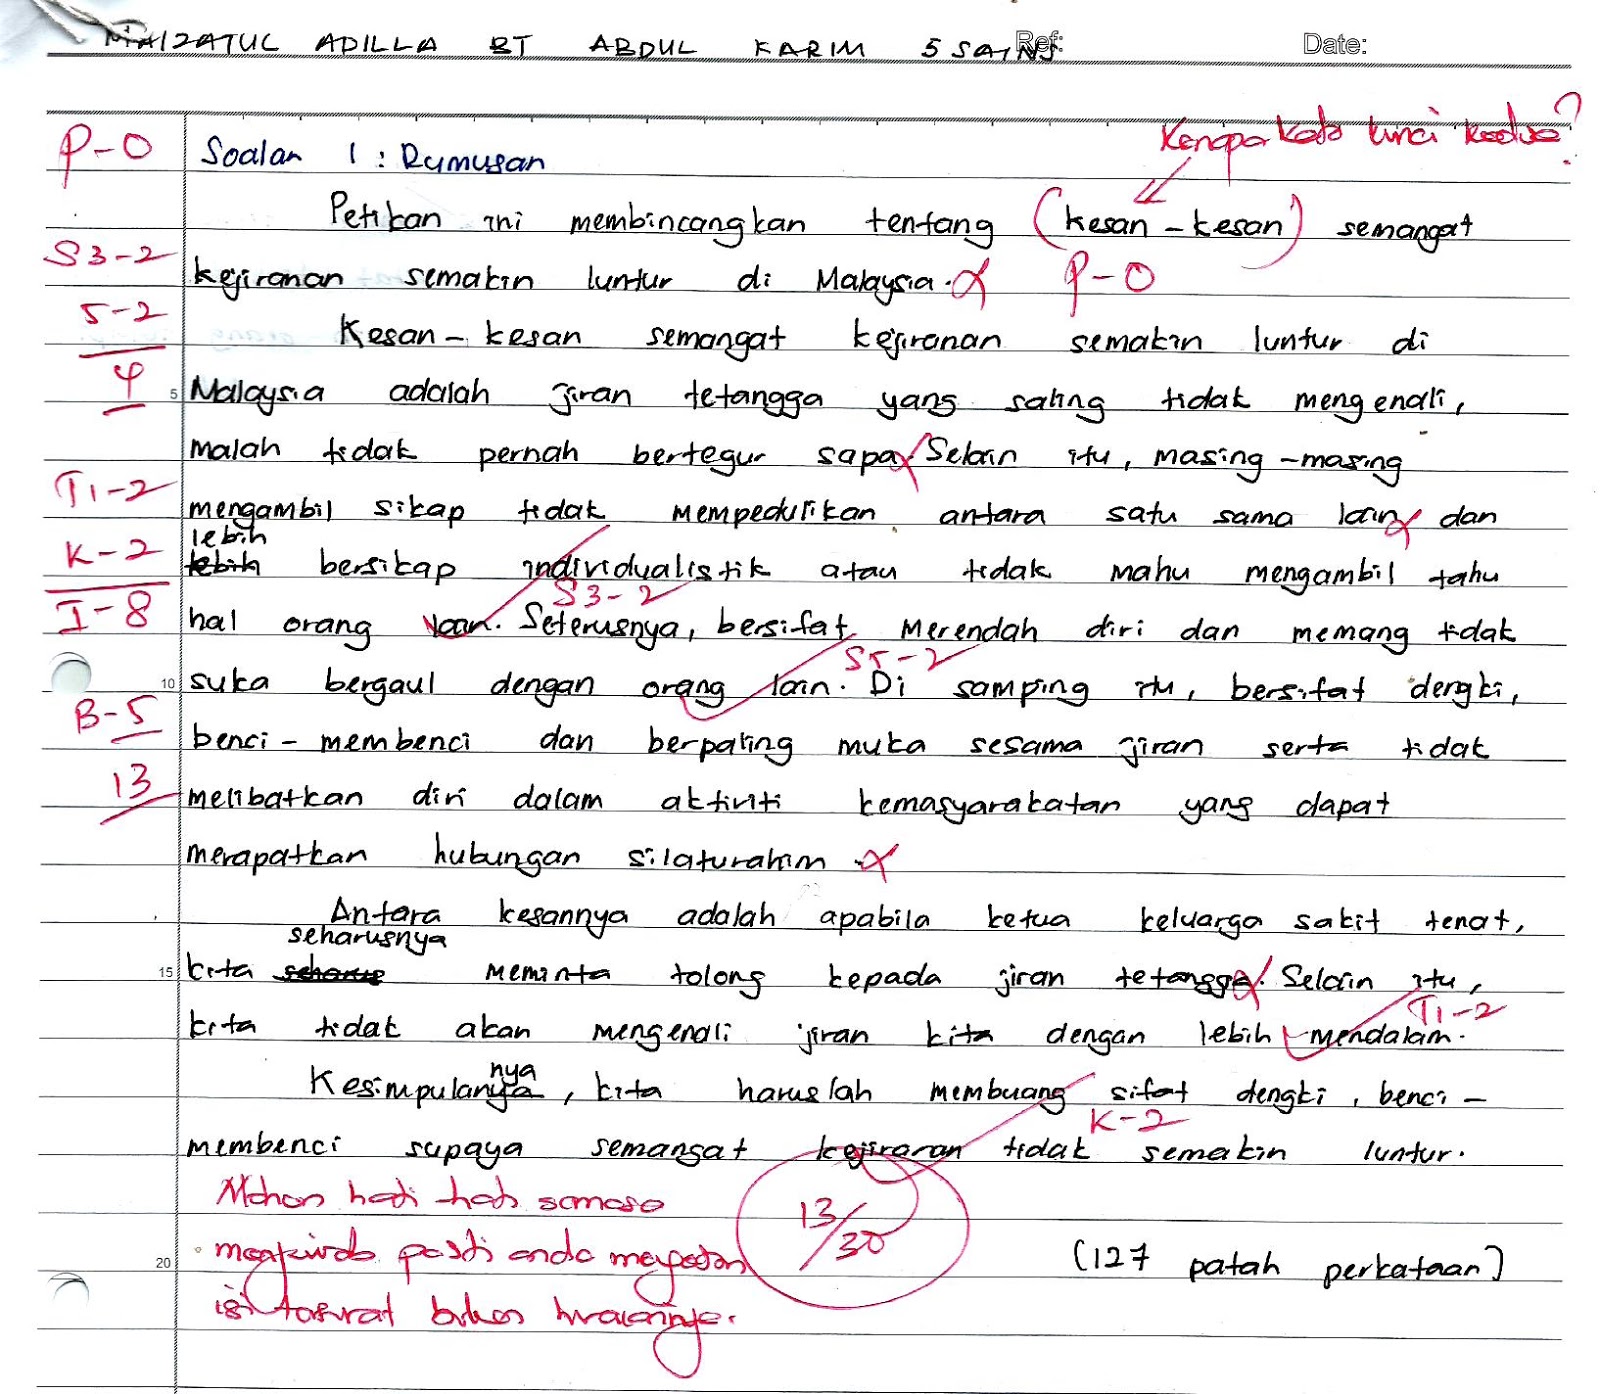 MAIZATUL ADILLA BT ABDUL KARIM 5 SAINS Ref: Date:
Kenapa kata kunci kedua?
P-0 Soalan 1 : Rumusan
Petikan ini membincangkan tentang (kesan-kesan) semangat
S3-2 kejiranan semakin luntur di Malaysia. P-0
5-2 Kesan-kesan semangat kejiranan semakin luntur di
4 5 Malaysia adalah jiran tetangga yang saling tidak mengenali,
malah tidak pernah bertegur sapa. Selain itu, masing-masing
T1-2 mengambil sikap tidak mempedulikan antara satu sama lain dan
lebih
K-2 lebih bersikap individualistik atau tidak mahu mengambil tahu
S3-2
I-8 hal orang lain. Seterusnya, bersifat merendah diri dan memang tidak
S5-2
10 suka bergaul dengan orang lain. Di samping itu, bersifat dengki,
B-5 benci-membenci dan berpaling muka sesama jiran serta tidak
13 melibatkan diri dalam aktiviti kemasyarakatan yang dapat
merapatkan hubungan silaturahim.
Antara kesannya adalah apabila ketua keluarga sakit tenat,
seharusnya
15 kita seharus meminta tolong kepada jiran tetangga. Selain itu,
T1-2
kita tidak akan mengenali jiran kita dengan lebih mendalam.
nya
Kesimpulanya, kita haruslah membuang sifat dengki, benci-
K-2
membenci supaya semangat kejiranan tidak semakin luntur.
Mohon hati-hati semasa
13/30
20 pasti anda (127 patah perkataan)
isi tersurat bukan huraiannya.